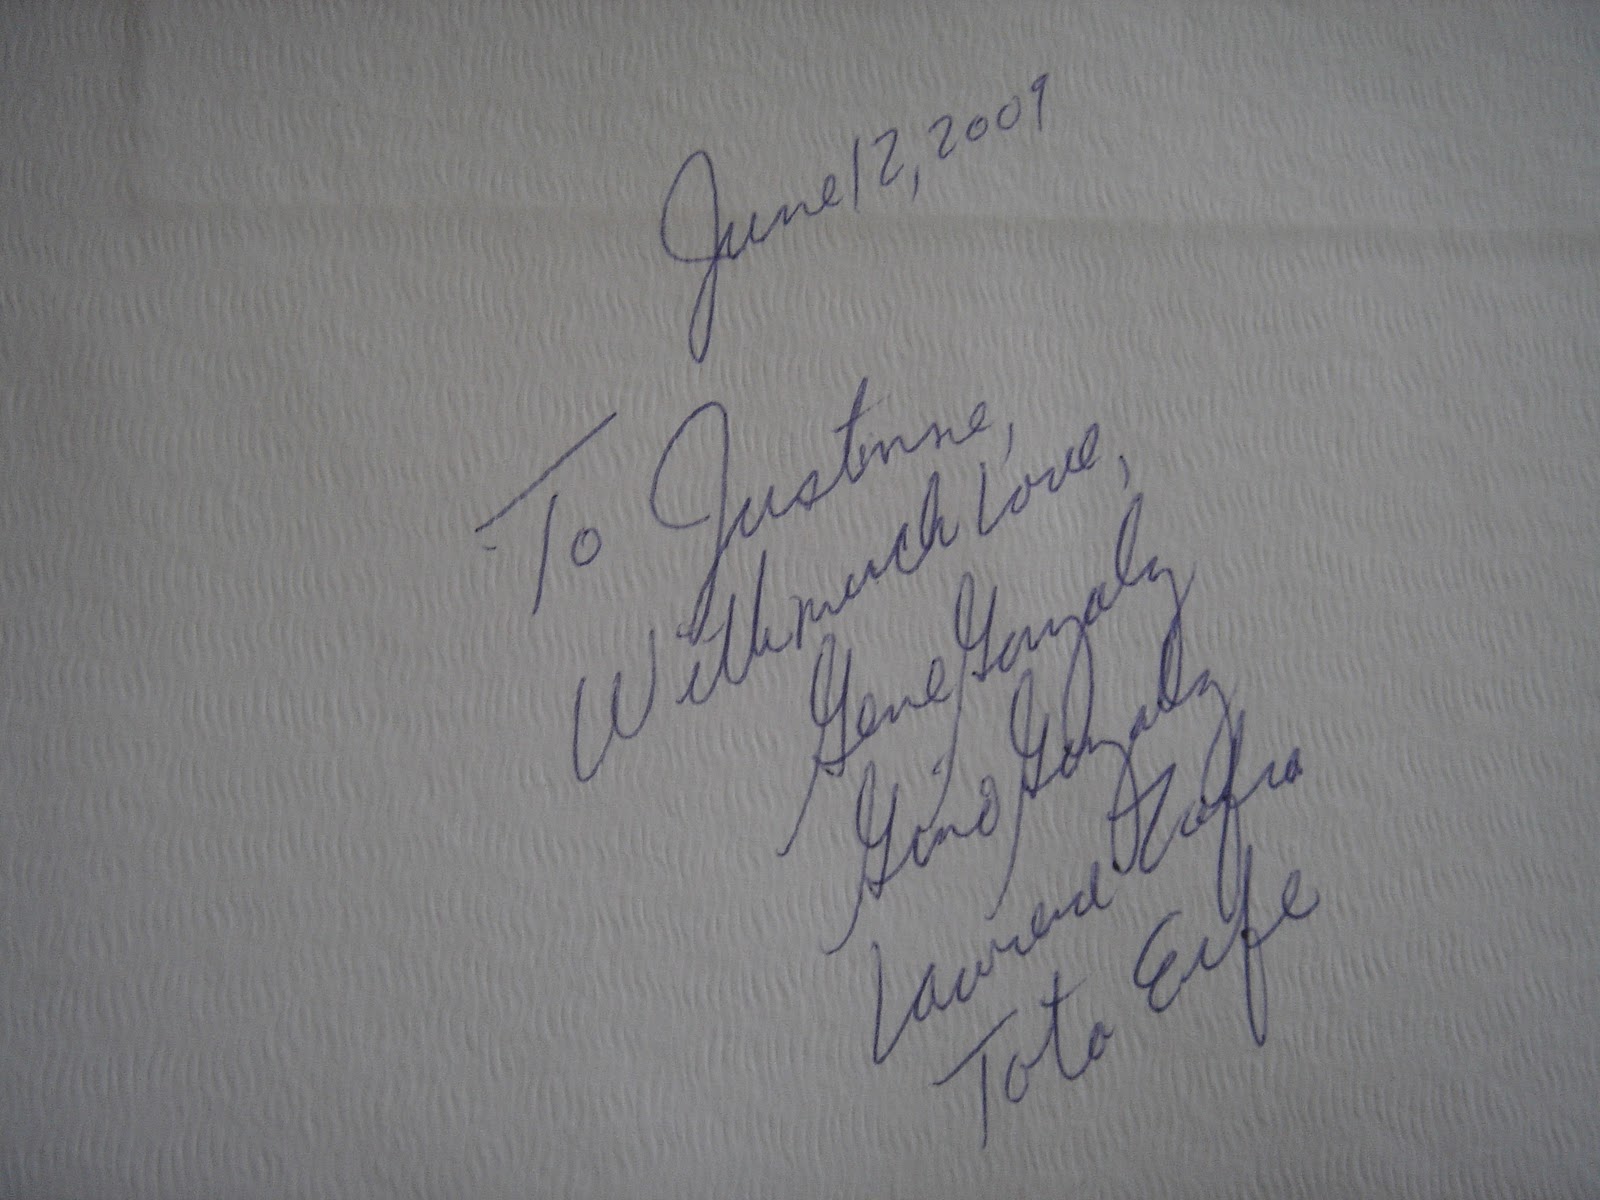 June 12, 2009
To Justinne,
With much Love,
Gene Gonzalez
Gino Gonzalez
Lawrence Zafra
Tota Erfe